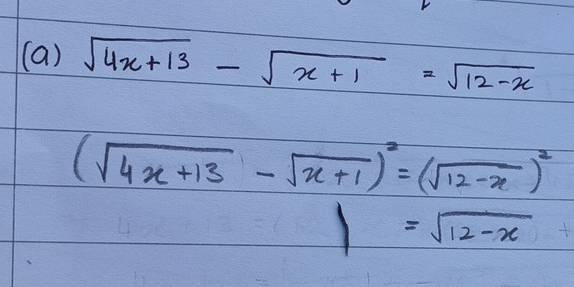 (a) √(4x+13) - √(x+1) = √(12-x)
(√(4x+13) - √(x+1))² = (√(12-x))²
= √(12-x)